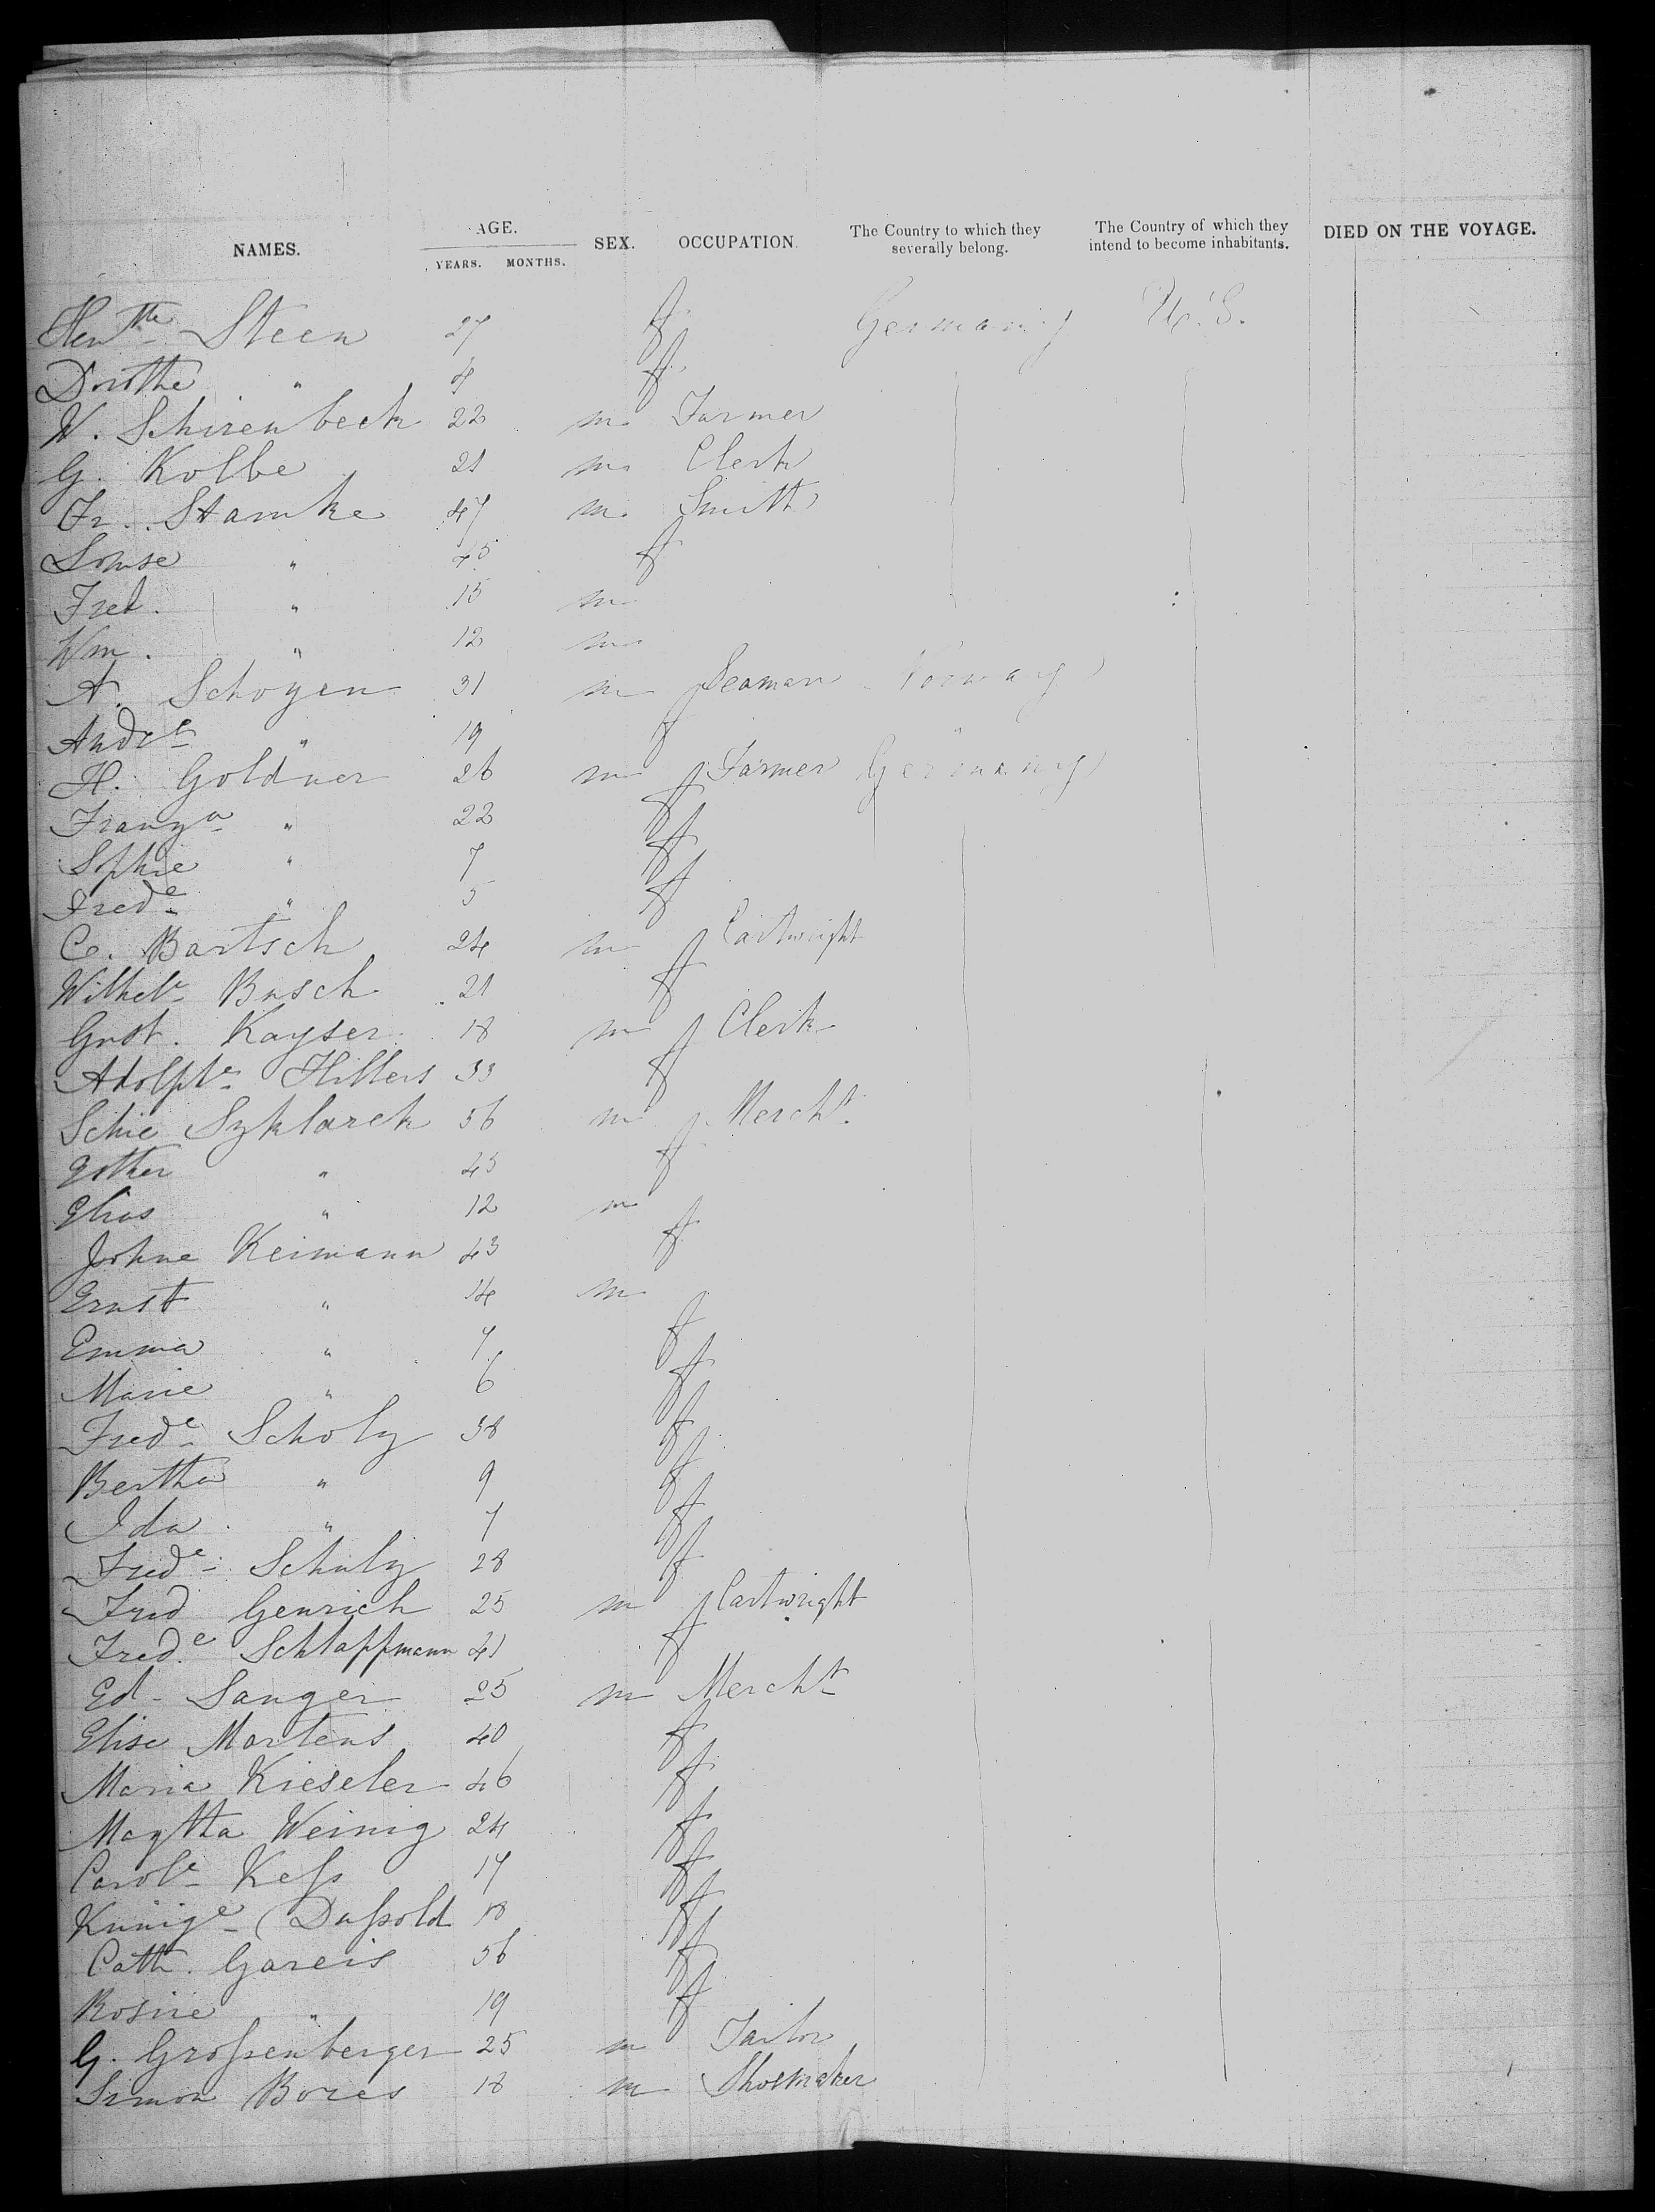 NAMES. AGE. YEARS. MONTHS. SEX. OCCUPATION. The Country to which they severally belong. The Country of which they intend to become inhabitants. DIED ON THE VOYAGE.
Hentte Steen 27 f Germany U.S.
Dorothe " 4 f
W. Schirenbeck 22 m Farmer
G. Kolbe 21 m Clerk
Fr. Stamke 47 m Smith
Louise " 45 f
Fred. " 15 m
Wm. " 12 m
A. Schoyen 31 m Seaman Norway
Andre " 19 f "
H. Goldner 26 m Farmer Germany
Franza " 22 f
Sophie " 7 f
Frede " 5 f
C. Bartsch 24 m Cartwright
Wilhele Busch 21 f
Gust. Kayser 18 m Clerk
Adolphe Hillers 33 f
Schie Szklarek 56 m Mercht.
Esther " 45 f
Elias " 12 m
Johne Keimann 43 f
Ernst " 14 m
Emma " 7 f
Marie " 6 f
Frede Scholz 38 f
Bertha " 9 f
Ida " 7 f
Frede Schulz 28 f
Fred Genrich 25 m Cartwright
Frede Schlaffmann 41 f
Ed. Sanger 25 m Mercht
Elise Martens 40 f
Maria Kieseler 46 f
Magtha Weinig 24 f
Carole Keſs 17 f
Kunige Duſsold 18 f
Cath. Gareis 56 f
Rosine " 19 f
G. Groſsenberger 25 m Tailor
Simon Bores 18 m Shoemaker